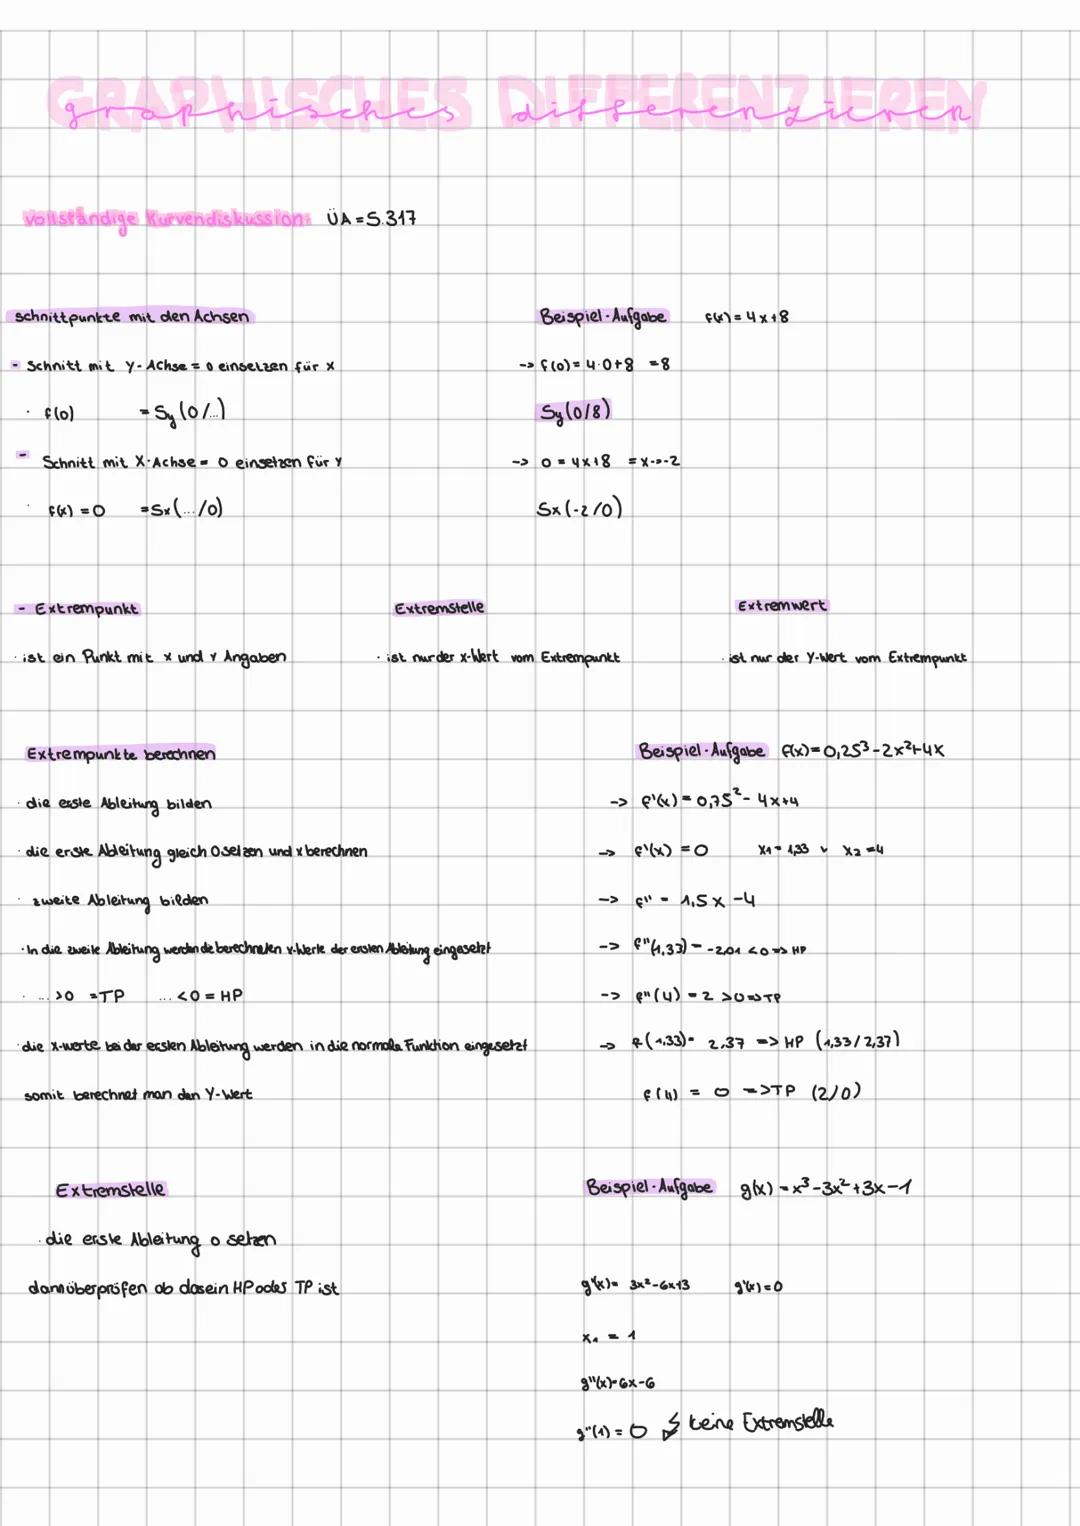 GRAPHISCHES DIFFERENZIEREN
graphisches differenzieren
vollständige Kurvendiskussion: ÜA = S.317
schnittpunkte mit den Achsen
Beispiel-Aufgabe f(x) = 4x+8
- Schnitt mit Y-Achse = 0 einsetzen für x
-> f(0) = 4·0+8 = 8
· f(0) = Sy (0/...)
Sy (0/8)
- Schnitt mit X-Achse = 0 einsetzen für Y
-> 0 = 4x+8 = x=-2
· f(x) = 0 = Sx (.../0)
Sx (-2/0)
- Extrempunkt
Extremstelle
Extremwert
· ist ein Punkt mit x und Y Angaben
· ist nur der x-Wert vom Extrempunkt
· ist nur der Y-Wert vom Extrempunkt
Extrempunkte berechnen
Beispiel-Aufgabe f(x) = 0,25³-2x²+4x
· die erste Ableitung bilden
-> f'(x) = 0,75²- 4x+4
· die erste Ableitung gleich 0 setzen und x berechnen
-> f'(x) = 0 x₁ = 1,33 v x₂ = 4
· zweite Ableitung bilden
-> f'' = 1,5x -4
· In die zweite Ableitung werden die berechneten x-Werte der ersten Ableitung eingesetzt
-> f''(1,33) = -2,01 <0 => HP
· ... >0 = TP ... <0 = HP
-> f''(4) = 2 >0 => TP
· die x-werte bei der ersten Ableitung werden in die normale Funktion eingesetzt
-> f(1,33) = 2,37 => HP (1,33/2,37)
somit berechnet man den Y-Wert
f(4) = 0 => TP (2/0)
Extremstelle
Beispiel-Aufgabe g(x) = x³-3x²+3x-1
· die erste Ableitung 0 setzen
dann überprüfen ob da ein HP oder TP ist
g'(x) = 3x²-6x+3 g'(x) = 0
x₁ = 1
g''(x) = 6x-6
g''(1) = 0 ↯ keine Extremstelle